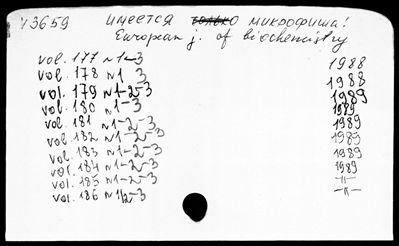 13659 имеется только микрофиша!
European j. of biochemistry
vol. 177 n 1-3 1988
vol. 178 n 1 3 1988
vol. 179 n 1-2-3 1989
vol. 180 n 1-3 1989
vol. 181 n 1-2-3 1989
vol. 182 n 1-2-3 1989
vol. 183 n 1-2-3 1989
vol. 184 n 1-2-3 1989
vol. 185 n 1-2-3 -"-
vol. 186 n 1-2-3 -"-